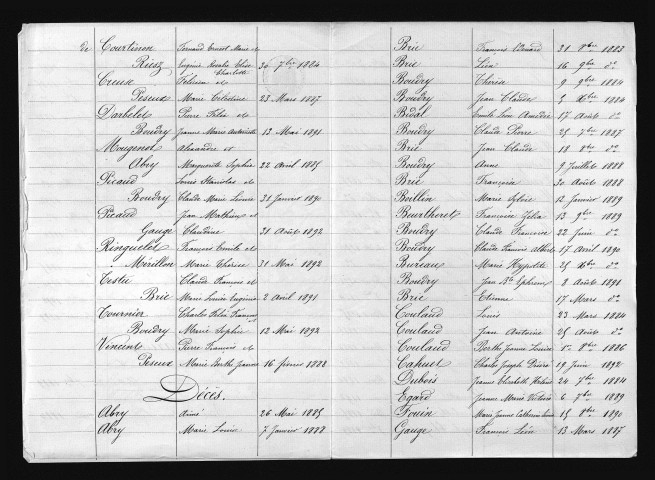 de Courtinen Fernand Ernest Marie et
Riesz Eugénie Rosalie Elise Charlotte 30 7bre 1884
Creux Félicien et
Peseux Marie Célestine 23 Mars 1887
Darbelet Pierre Félix et
Boudry Jeanne Marie Antoinette 13 Mai 1891
Mougenot Alexandre et
Abry Marguerite Sophie 22 Avril 1885
Picaud Louis Stanislas et
Boudry Claude Marie Louise 31 Janvier 1890
Picaud Jean Mathieu et
Gauge Claudine 31 Août 1892
Ringuelet François Emile et
Mérillon Marie Thérèse 31 Mai 1892
Testu Claude François et
Brie Marie Louise Eugénie 2 Avril 1891
Tournier Charles Félix François
Boudry Marie Sophie 12 Mai 1892
Vincent Pierre François et
Peseux Marie Berthe Jeanne 16 février 1888
Décès.
Abry Aimé 26 Mai 1885
Abry Marie Louise 7 Janvier 1888
Brie François Edouard 31 8bre 1883
Brie Léa 16 9bre do
Boudry Thérèse 9 9bre 1884
Boudry Jean Claude 5 Xbre 1884
Bidal Emile Léon Amédée 17 Août do
Boudry Claude Pierre 25 7bre 1887
Brie Jean Claude 18 8bre do
Boudry Anne 9 Juillet 1888
Brie Françoise 30 Août 1888
Boillin Marie Sylvie 12 Janvier 1889
Beurtheret Françoise Félix 13 9bre 1889
Boudry Claude Françoise 22 Juin do
Boudry Claude Francois Albert 17 Avril 1890
Bureau Marie Hypolite 25 Xbre do
Boudry Jean Bte Ephrem 8 Août 1891
Brie Etienne 17 Mars do
Coulaud Louis 23 Mars 1884
Coulaud Jean Antoine 25 Août do
Coulaud Berthe Jeanne Louise 1er 8bre 1886
Cahuet Charles Joseph Désiré 19 Juin 1892
Dubois Jeanne Elisabeth Hélène 24 7bre 1884
Egard Jeanne Marie Victoire 6 7bre 1889
Fouin Marie Jeanne Catherine 15 8bre 1890
Gauge François Léon 13 Mars 1887